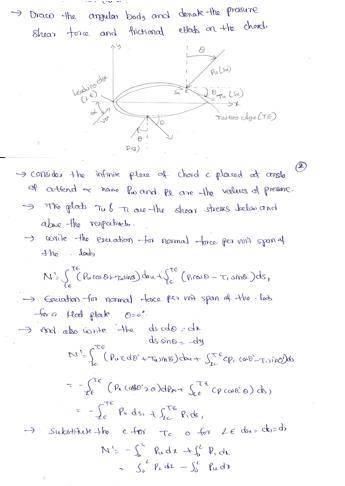 → Draw the angular body and denote the pressure
shear force and frictional effects on the chord.
y
θ
Pu (Su)
Leading edge
(L.E)
Su
θ
Tu (Su)
α
V∞
x
Trailing edge (TE)
θ
②
→ Consider the infinite plate of chord c placed at angle
of attend α name Pu and Pl are the values of pressure.
→ The plats Tu & Tl are the shear stresses below and
above the respectively.
→ Write the Equation for normal force per unit span of
the body
N' = -∫_LE^TE (Pu cosθ + Tu sinθ) dsu + ∫_LE^TE (Pl cosθ - Tl sinθ) dsl
→ Equation for normal force per unit span of the body
for a flat plate θ=0°
→ And also write the ds cosθ = dx
ds sinθ = -dy
N' = ∫_LE^TE (Pu cosθ + Tu sinθ) dsu + ∫_LE^TE (Pl cosθ - Tl sinθ) dsl
= -∫_LE^TE (Pu cosθ) + ∫_LE^TE (Pl cosθ) dsl
= -∫_LE^TE Pu dsu + ∫_LE^TE Pl dsl
→ Substitute the c for TE 0 for LE dsu = dsl = dx
N' = -∫_0^c Pu dx + ∫_0^c Pl dx
= ∫_0^c Pl dx - ∫_0^c Pu dx